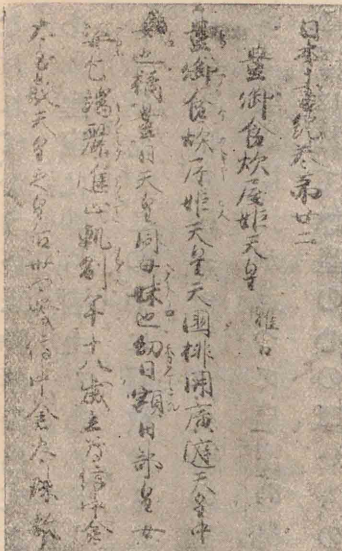 日本書紀卷第廿二
豐御食炊屋姫天皇 推古
豐御食炊屋姫天皇天國排開廣庭天皇中
女也橘豐日天皇同母妹也幼曰額田部皇女
姿色端麗進止軌制年十八歳立爲渟中倉
太玉敷天皇之皇后卅四歳渟中倉太珠敷